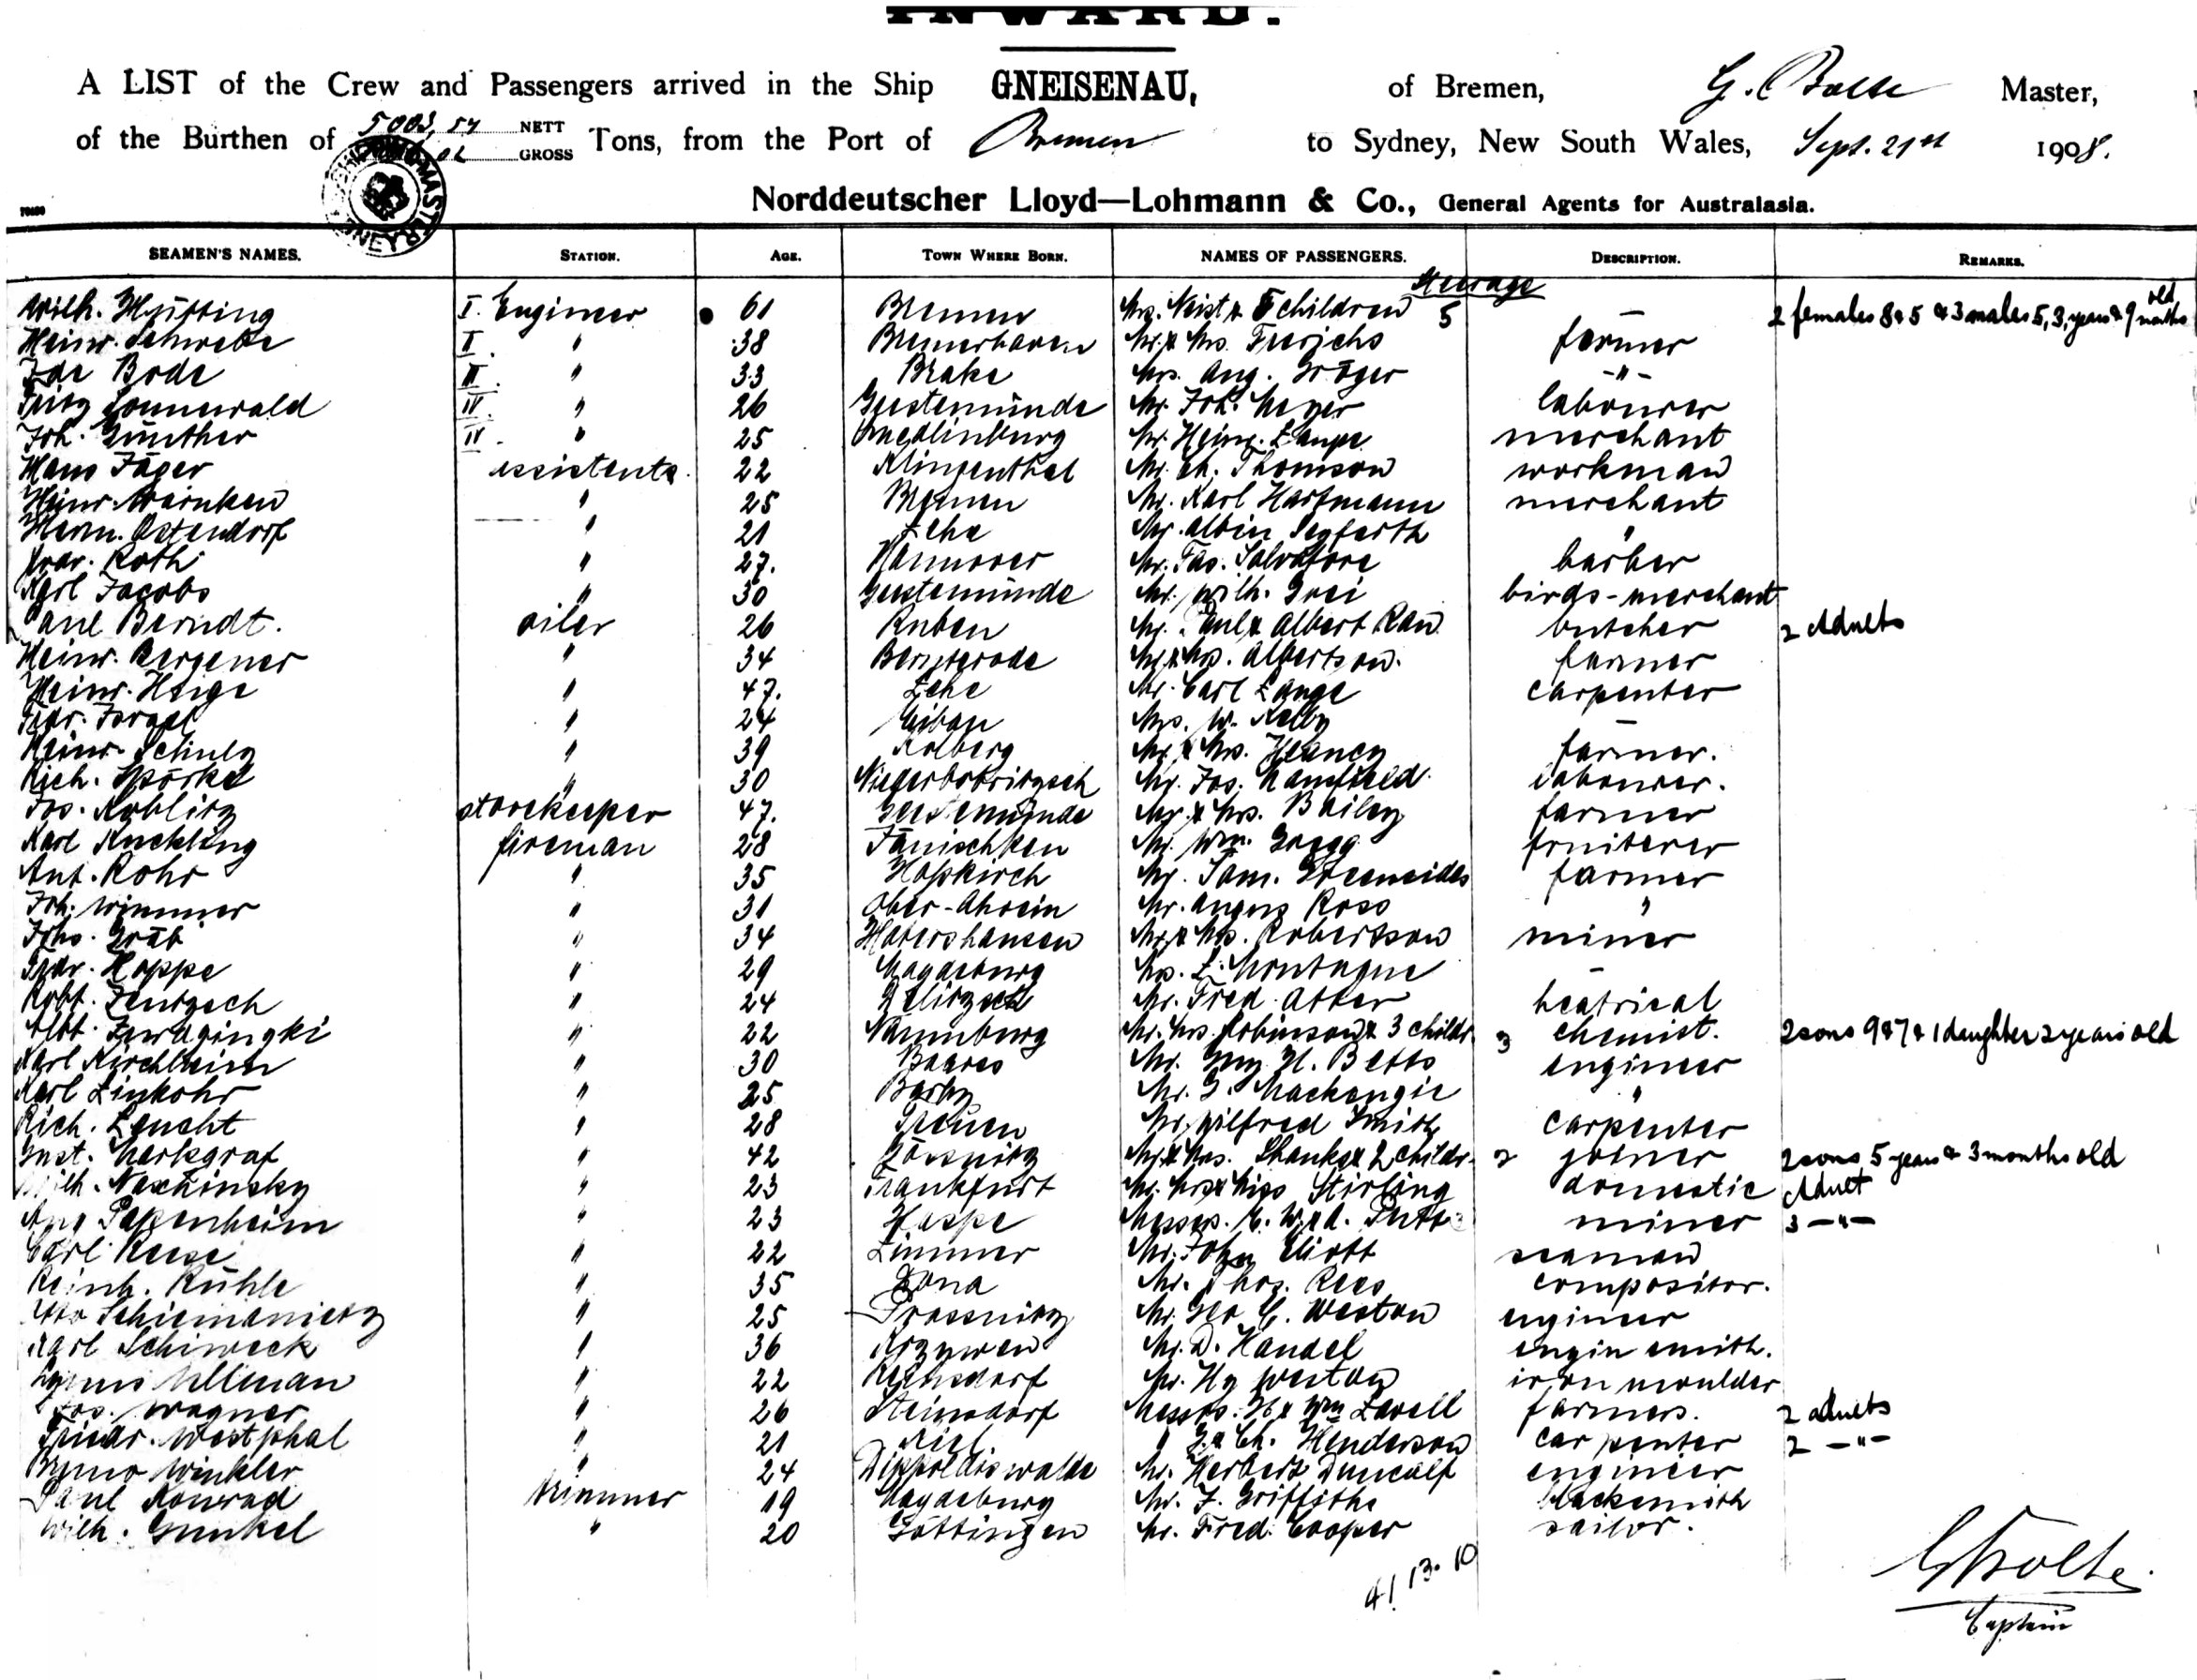 INWARD.
A LIST of the Crew and Passengers arrived in the Ship GNEISENAU, of Bremen, G. Bolte Master,
of the Burthen of 5003,54 NETT GROSS Tons, from the Port of Bremen to Sydney, New South Wales, Sept. 21st 1908.
Norddeutscher Lloyd—Lohmann & Co., General Agents for Australasia.
SEAMEN'S NAMES. STATION. AGE. TOWN WHERE BORN. NAMES OF PASSENGERS. DESCRIPTION. REMARKS.
Steerage
Wilh. I. Engineer 61 Bremen Mrs. Neist & 5 children 5 — 2 females 8 & 5 & 3 males 5, 3, years & 9 months old
Heinr. II. " 38 Bremerhaven Mr. & Mrs. Frerichs farmer
Ide Bode III. " 33 Brake Mrs. Aug. Gröger -"-
Fritz Sonnewald IV. " 26 Geestemünde Mr. Joh. Meyer labourer
Joh. Günther IV. " 25 Quedlinburg Mr. Heinr. Lampe merchant
Hans Jäger assistents. 22 Klingenthal Mr. Ch. Thomson workman
Heinr. Warnken " 25 Bremen Mr. Karl Hartmann merchant
Herm. Ostendorf " 21 Lehe Mr. Albin Seyferth "
Frdr. Roth " 27. Hannover Mr. Fas. Salvatore barber
Karl Jacobs " 30 Geestemünde Mr. Wilh. Grei birds-merchant
Paul Berndt. oiler 26 Ruben Mr. Paul & Albert Rau butcher 2 Adults
Heinr. Bergener " 34 Bernterode Mr. & Mrs. Albertson. farmer
Heinr. Heige " 47. Lehe Mr. Carl Lange carpenter
Frdr. " 24 Libau Mrs. W. Kelly —
Heinr. Schulz " 39 Kolberg Mr. & Mrs. farmer.
Rich. " 30 Mr. Jos. labourer.
Jos. storekeeper 47. Geestemünde Mr. & Mrs. Bailey farmer
Karl fireman 28 Mr. Wm. Gregg fruiterer
Ant. Rohr " 35 Hosskirch Mr. Sam. farmer
Joh. Wimmer " 31 Ober-Ahrain Mr. Angus Ross "
Johs. Gräb " 34 Habershausen Mr. & Mrs. Robertson miner
Frdr. Hoppe " 29 Magdeburg Mrs. L. Montague —
Robt. Zentzsch " 24 Delitzsch Mr. Fred. heatrical
Albt. " 22 Naumburg Mr. Mrs. Robinson & 3 childr. 3 chemist. 2 sons 9 & 7 & 1 daughter 2 years old
Karl Kirchheim " 30 Mr. H. Betts engineer
Karl Linkohr " 25 Barby Mr. G. Mackenzie "
Rich. Leucht " 28 Treuen Mr. Wilfred Smith carpenter
Gust. Markgraf " 42 Mr. & Mrs. Shanks & 2 childr. 2 joiner 2 sons 5 years & 3 months old
Wilh. " 23 Frankfurt Mr. Mrs & Miss Stirling domestic Adult
Aug Papenheim " 23 Haspe Messrs. miner 3 -"-
Carl Reese " 22 Zimmer Mr. John Eliott seaman
Reinh. Rühle " 35 Mr. Thos. Rees compositor.
Otto " 25 Mr. Geo C. Weston engineer
Karl Schiweck " 36 Mr. D. Handel engin smith.
Ullman " 22 Mr. Hy Weston iron moulder
Jos. Wagner " 26 Steinsdorf Messrs. H & Wm Lavell farmers. 2 adults
Friedr. Westphal " 21 Kiel " G. & Ch. Henderson carpenter 2 -"-
Bruno Winkler " 24 Dippoldiswalde Mr. Herbert Duncalf engineer
Paul Konrad trimmer 19 Magdeburg Mr. J. Griffiths blacksmith
Wilh. Gunkel " 20 Göttingen Mr. Fred Cooper sailor.
41 13. 10
G Bolte.
Captain